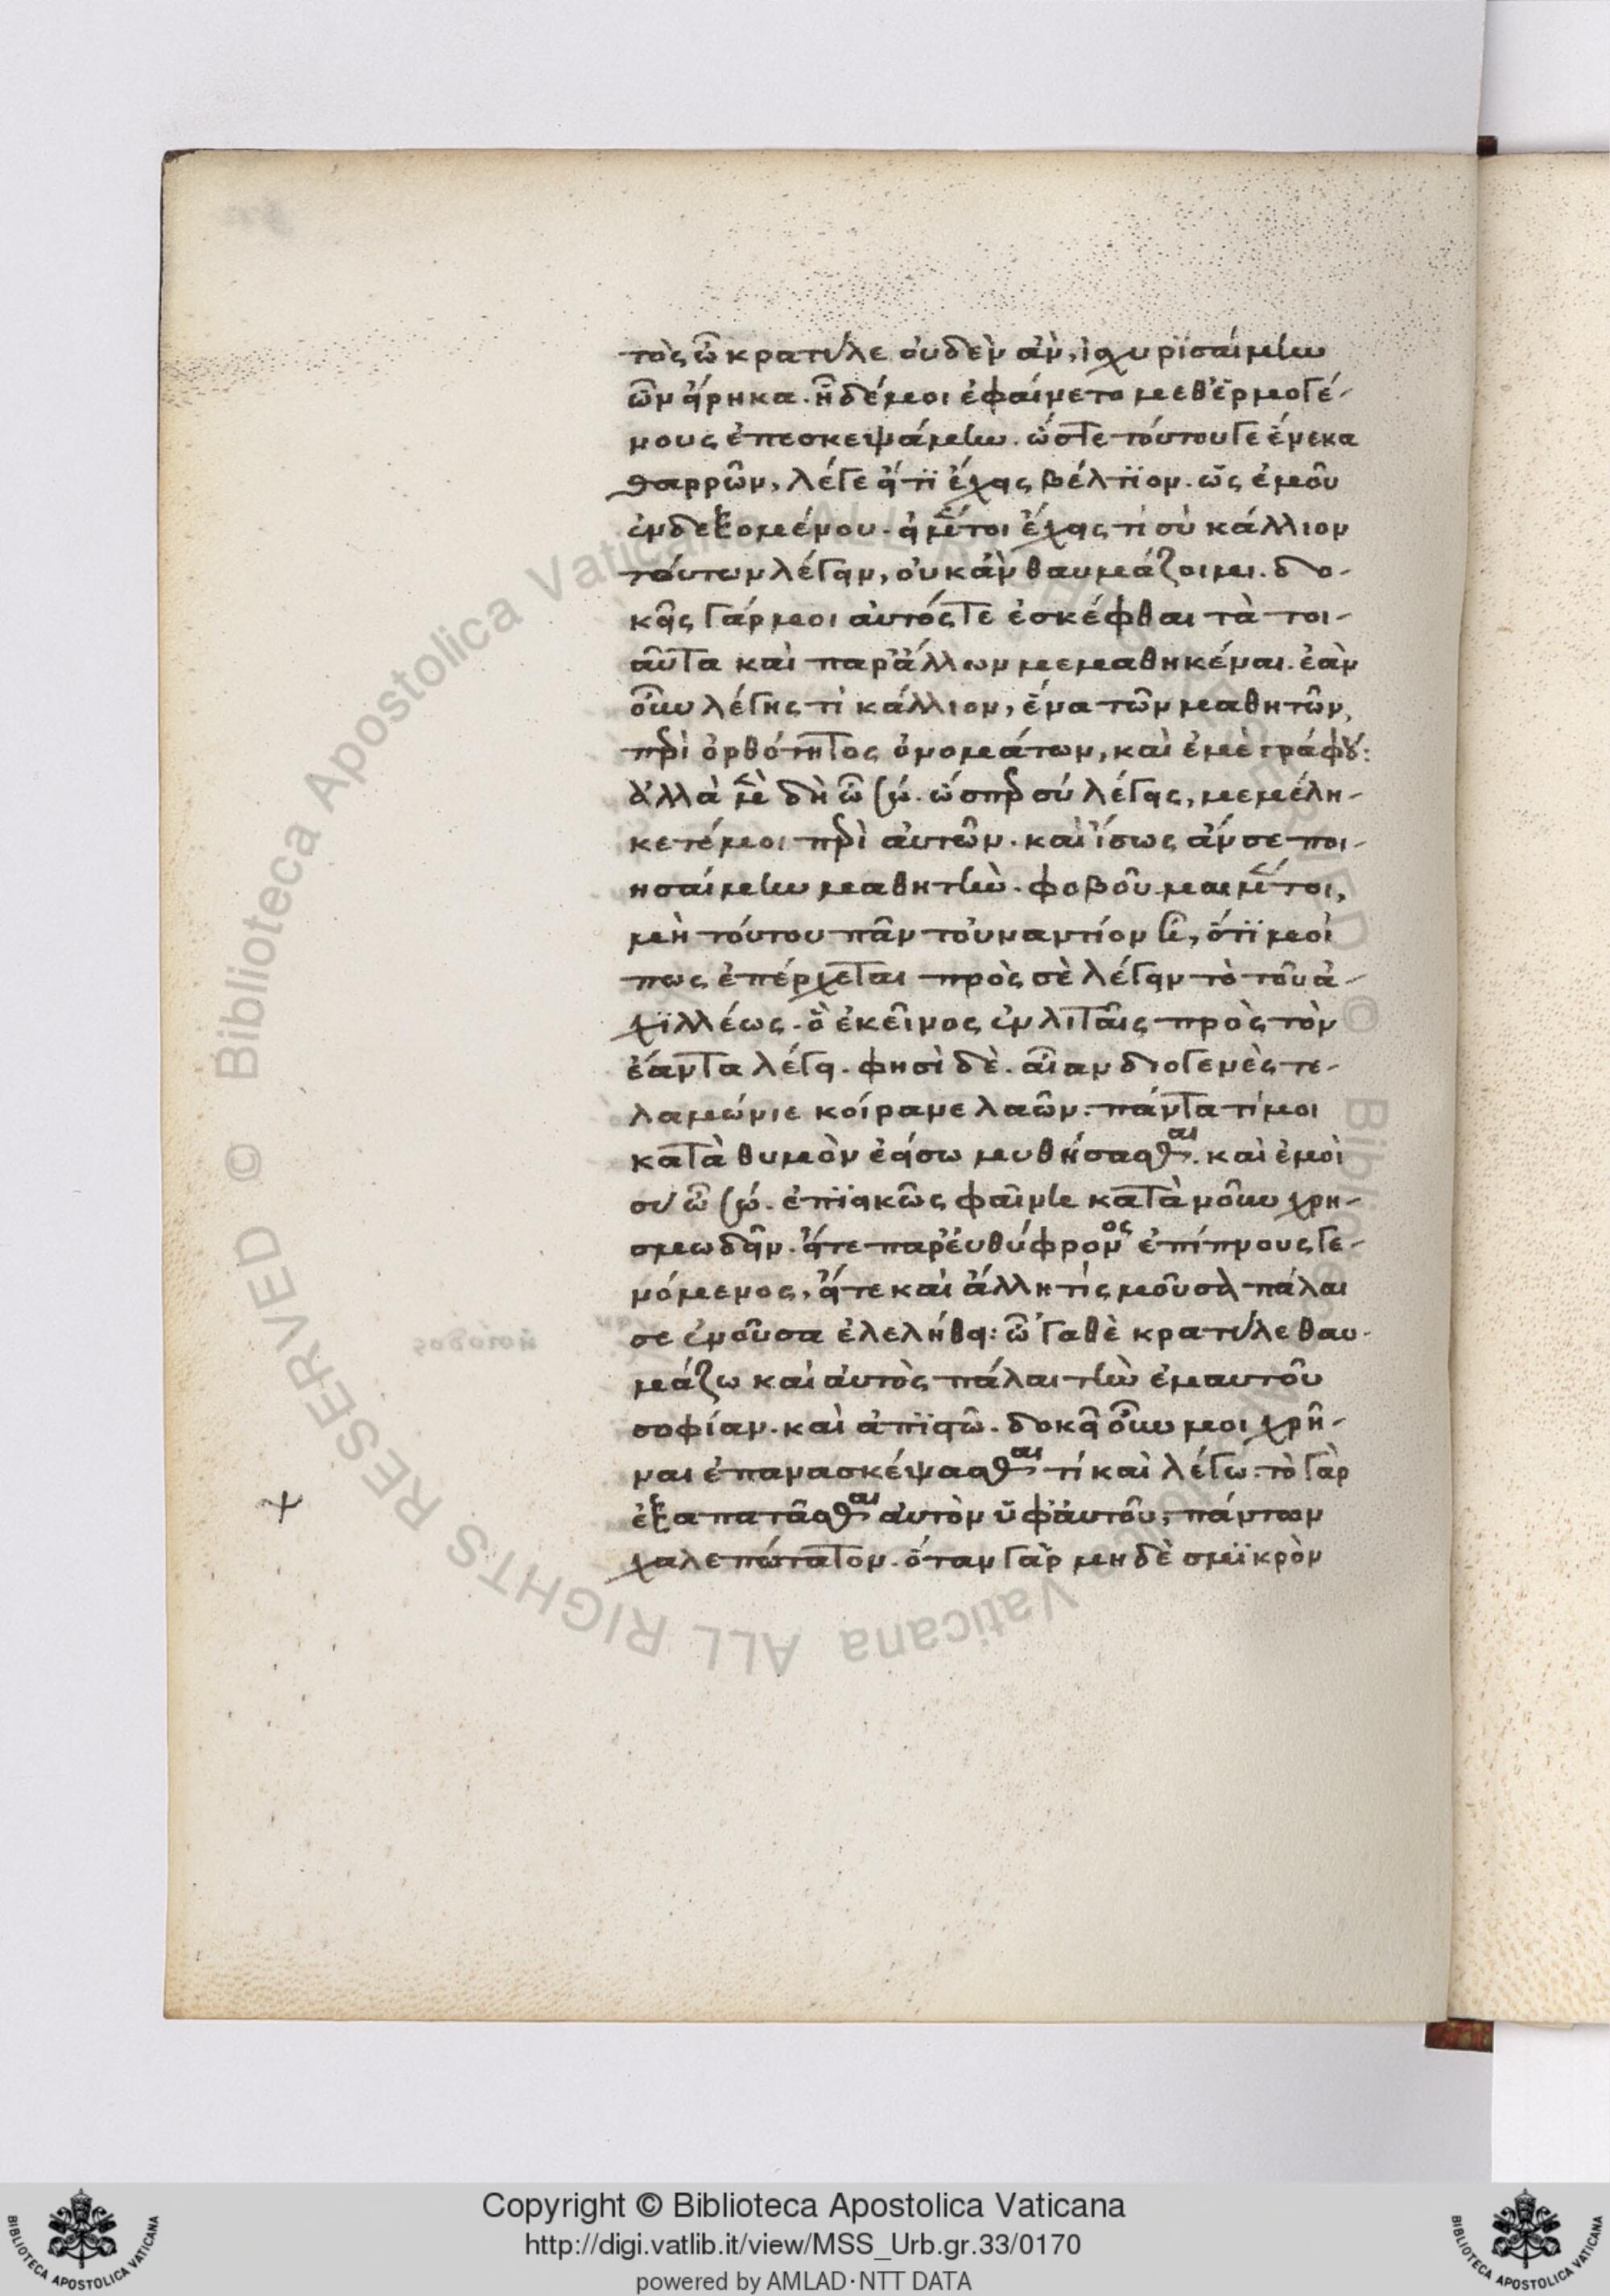 τὸς ὦ κρατύλε οὐδὲν ἂν, ἰσχυρϊσαίμην
ὧν εἴρηκα. ἧ δέ μοι ἐφαίνετο μεθ' ἑρμογέ-
νους ἐπεσκεψάμην. ὥστε τούτου γε ἕνεκα
θαρρῶν, λέγε εἴ τϊ ἔχεις βέλτϊον. ὡς ἐμοῦ
ἐνδεξομένου. εἰ μέντοι ἔχεις τὶ σὺ κάλλιον
τούτων λέγειν, οὐκ ἂν θαυμάζοιμι. δο-
κεῖς γάρ μοι αὐτός τε ἐσκέφθαι τὰ τοι-
αῦτα καὶ παρ' ἄλλων μεμαθηκέναι. ἐὰν
οὖν λέγης τὶ κάλλιον, ἕνα τῶν μαθητῶν,
περὶ ὀρθότητος ὀνομάτων, καὶ ἐμὲ γράφου:
ἀλλὰ μὲν δὴ ὦ σώ. ὥσπερ σύ λέγεις, μεμέλη-
κε τέ μοι περὶ αὐτῶν. καὶ ἴσως ἄν σε ποι-
ησαίμην μαθητὴν. φοβοῦμαι μέντοι,
μὴ τούτου πᾶν τοὐναντίον ἦ, ὅτϊ μοί
πως ἐπέρχεται πρὸς σὲ λέγειν τὸ τοῦ ἀ-
χϊλλέως. ὃ ἐκεῖνος ἐν λιταῖς πρὸς τὸν
ἐάντα λέγει. φησὶ δὲ. αἶαν διογενὲς τε-
λαμώνιε κοίρανε λαῶν. πάντα τί μοι
κατὰ θυμὸν ἐείσω μυθήσασθαι. καὶ ἐμοὶ
σὺ ὦ σώ. ἐπϊεικῶς φαίνη κατὰ νοῦν χρη-
σμωδεῖν. εἴτε παρ' εὐθύφρονος ἐπίπνους γε-
νόμενος, εἴτε καὶ ἄλλη τὶς μοῦσα πάλαι
σε ἐνοῦσα ἐλελήθει: ὦ 'γαθὲ κρατύλε θαυ-
μάζω καὶ αὐτὸς πάλαι τὴν ἐμαυτοῦ
σοφίαν. καὶ ἀπϊστῶ. δοκεῖ οὖν μοι χρῆ-
ναι ἐπανασκέψασθαι τί καὶ λέγω. τὸ γὰρ
ἐξαπατᾶσθαι αὐτὸν ὑφ' αὑτοῦ, πάντων
χαλεπώτατον. ὅταν γὰρ μηδὲ σμϊκρὸν
Copyright © Biblioteca Apostolica Vaticana
http://digi.vatlib.it/view/MSS_Urb.gr.33/0170
powered by AMLAD·NTT DATA